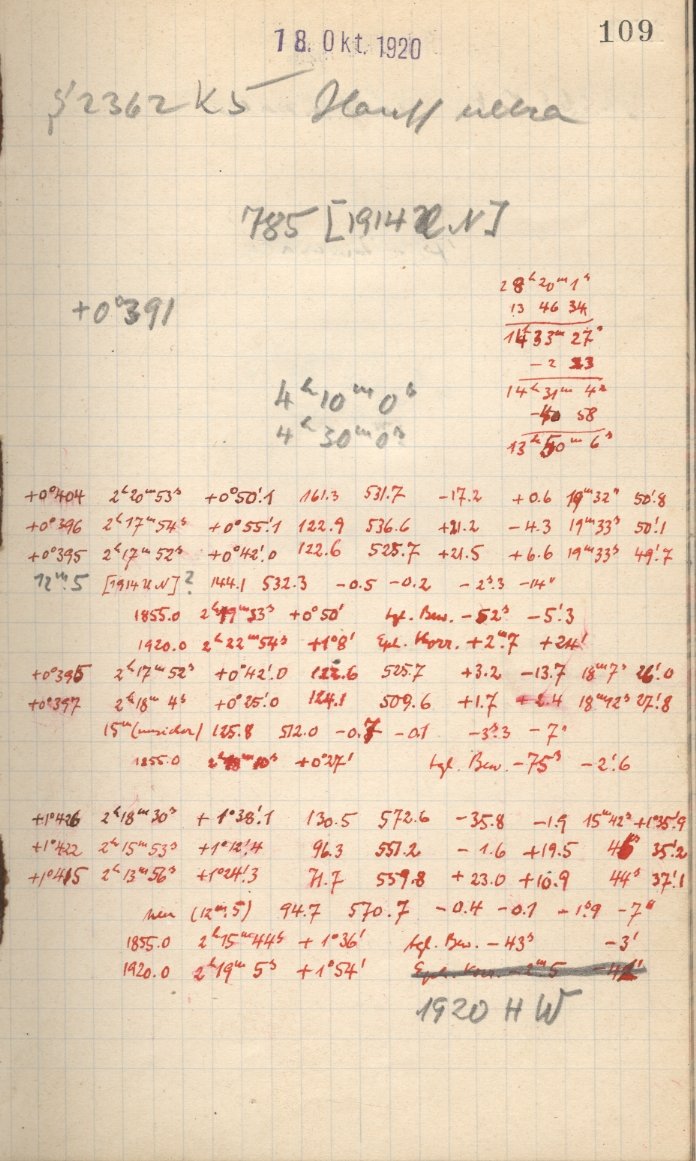 109
18. Okt. 1920
2362 K5 Hauff ultra
785 [1914 UN]
28ʰ20ᵐ1ˢ
13 46 34
+0°391
14 33ᵐ 27ˢ
-2 23
14ʰ31ᵐ 4ˢ
4ʰ10ᵐ0ˢ
-40 58
4ʰ30ᵐ0ˢ
13ʰ50ᵐ6ˢ
+0°404 2ʰ20ᵐ53ˢ +0°50'.1 161.3 531.7 -17.2 +0.6 19ᵐ32ˢ 50'.8
+0°396 2ʰ17ᵐ54ˢ +0°55'.1 122.9 536.6 +21.2 -4.3 19ᵐ33ˢ 50'.1
+0°395 2ʰ17ᵐ52ˢ +0°42'.0 122.6 525.7 +21.5 +6.6 19ᵐ33ˢ 49'.7
12ᵐ.5 [1914 UN]? 144.1 532.3 -0.5 -0.2 -2ˢ.3 -14"
1855.0 2ʰ19ᵐ33ˢ +0°50' tgl. Bew. -52ˢ -5'.3
1920.0 2ʰ22ᵐ54ˢ +1°8' Epl. Korr. +2ᵐ.7 +24'
+0°395 2ʰ17ᵐ52ˢ +0°42'.0 122.6 525.7 +3.2 -13.7 18ᵐ7ˢ 26'.0
+0°397 2ʰ18ᵐ 4ˢ +0°25'.0 124.1 509.6 +1.7 +2.4 18ᵐ12ˢ 27'.8
15ᵐ (unsicher) 125.8 512.0 -0.7 -0.1 -3ˢ.3 -7"
1855.0 2ʰ18ᵐ10ˢ +0°27' tgl. Bew. -75ˢ -2'.6
+1°426 2ʰ18ᵐ30ˢ +1°38'.1 130.5 572.6 -35.8 -1.9 15ᵐ42ˢ +1°35'.9
+1°422 2ʰ15ᵐ53ˢ +1°12'.4 96.3 551.2 -1.6 +19.5 45ˢ 35'.2
+1°415 2ʰ13ᵐ56ˢ +1°24'.3 71.7 559.8 +23.0 +10.9 44ˢ 37'.1
neu (12ᵐ.5) 94.7 570.7 -0.4 -0.1 -1ˢ.9 -7"
1855.0 2ʰ15ᵐ44ˢ +1°36' tgl. Bew. -43ˢ -3'
1920.0 2ʰ19ᵐ 5ˢ +1°54' Epl. Korr. -2ᵐ5 -42'
1920 HW